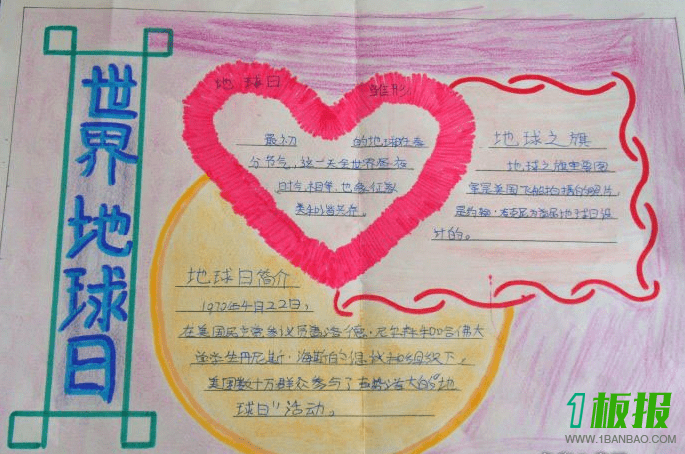 世界地球日
地球日 雏形
最初 的地球日在春
分节气,这一天全世界昼夜
时令相等,也象征
类和谐共存。
地球之旗
地球之旗里
美国飞船拍摄的照片,
是约翰·麦 为首届地球日设
计的。
地球日简介
1970年4月22日,
在美国民主党参议员盖洛德·尼尔森和哈佛大
学学生丹尼斯·海斯的提议和组织下,
美国数十万群众参与了 大的“地
球日”活动。
1板报
WWW.1BANBAO.COM